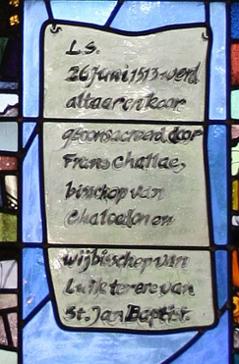 L.S.
26 juni 1513 werd
altaar en koor
geconsacreerd door
Frans Chatlae,
bisschop van
Chalcedon en
wijbisschop van
Luik ter ere van
St. Jan Baptist.